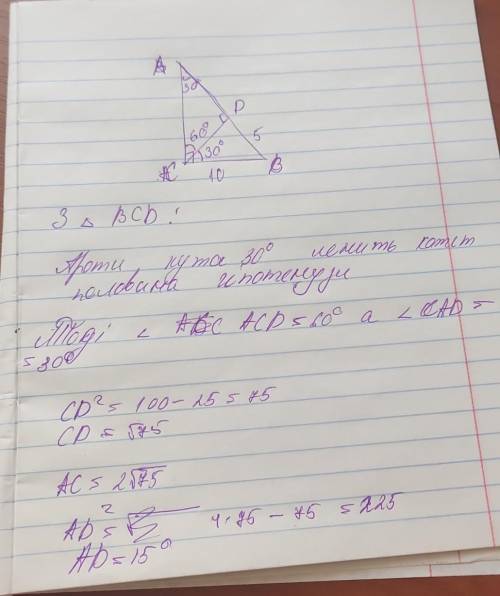 A
30
D
60°
5
30°
C
10
B
З △ BCD:
Проти кута 30° лежить катет
половина гіпотенузи
Тоді < ACD = 60° а < CAD =
= 30°
CD² = 100 - 25 = 75
CD = √75
AC = 2√75
AD² = 4·75 - 75 = 225
AD = 15